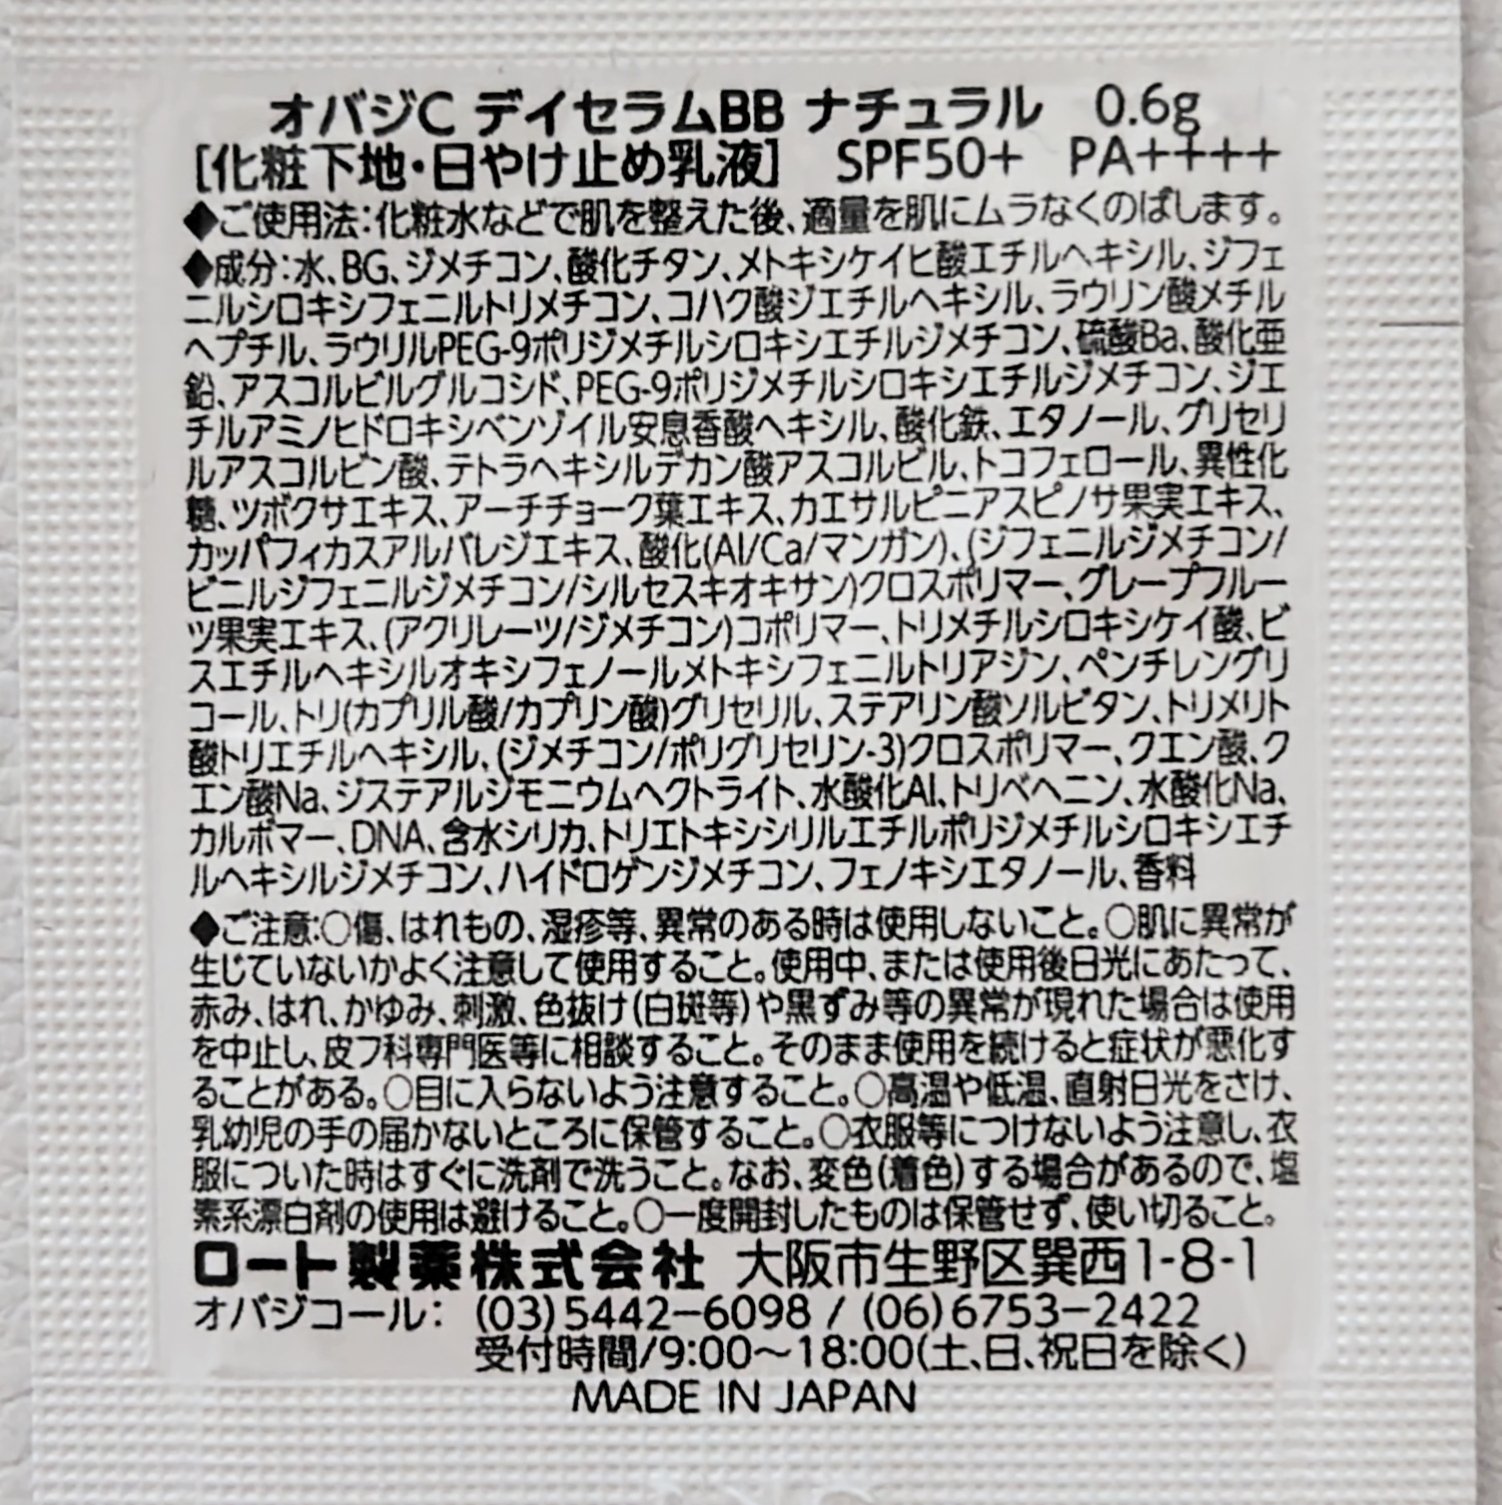 オバジC デイセラムBB ナチュラル 0.6g
[化粧下地・日やけ止め乳液] SPF50+ PA++++
◆ご使用法：化粧水などで肌を整えた後、適量を肌にムラなくのばします。
◆成分：水、BG、ジメチコン、酸化チタン、メトキシケイヒ酸エチルヘキシル、ジフェ
ニルシロキシフェニルトリメチコン、コハク酸ジエチルヘキシル、ラウリン酸メチル
ヘプチル、ラウリルPEG-9ポリジメチルシロキシエチルジメチコン、硫酸Ba、酸化亜
鉛、アスコルビルグルコシド、PEG-9ポリジメチルシロキシエチルジメチコン、ジエ
チルアミノヒドロキシベンゾイル安息香酸ヘキシル、酸化鉄、エタノール、グリセリ
ルアスコルビン酸、テトラヘキシルデカン酸アスコルビル、トコフェロール、異性化
糖、ツボクサエキス、アーチチョーク葉エキス、カエサルピニアスピノサ果実エキス、
カッパフィカスアルバレジエキス、酸化(Al/Ca/マンガン)、(ジフェニルジメチコン/
ビニルジフェニルジメチコン/シルセスキオキサン)クロスポリマー、グレープフルー
ツ果実エキス、(アクリレーツ/ジメチコン)コポリマー、トリメチルシロキシケイ酸、ビ
スエチルヘキシルオキシフェノールメトキシフェニルトリアジン、ペンチレングリ
コール、トリ(カプリル酸/カプリン酸)グリセリル、ステアリン酸ソルビタン、トリメリト
酸トリエチルヘキシル、(ジメチコン/ポリグリセリン-3)クロスポリマー、クエン酸、ク
エン酸Na、ジステアルジモニウムヘクトライト、水酸化Al、トリベヘニン、水酸化Na、
カルボマー、DNA、含水シリカ、トリエトキシシリルエチルポリジメチルシロキシエチ
ルヘキシルジメチコン、ハイドロゲンジメチコン、フェノキシエタノール、香料
◆ご注意：○傷、はれもの、湿疹等、異常のある時は使用しないこと。○肌に異常が
生じていないかよく注意して使用すること。使用中、または使用後日光にあたって、
赤み、はれ、かゆみ、刺激、色抜け(白斑等)や黒ずみ等の異常が現れた場合は使用
を中止し、皮フ科専門医等に相談すること。そのまま使用を続けると症状が悪化す
ることがある。○目に入らないよう注意すること。○高温や低温、直射日光をさけ、
乳幼児の手の届かないところに保管すること。○衣服等につけないよう注意し、衣
服についた時はすぐに洗剤で洗うこと。なお、変色(着色)する場合があるので、塩
素系漂白剤の使用は避けること。○一度開封したものは保管せず、使い切ること。
ロート製薬株式会社 大阪市生野区巽西1-8-1
オバジコール： (03)5442−6098 / (06)6753−2422
受付時間/9:00〜18:00(土、日、祝日を除く)
MADE IN JAPAN